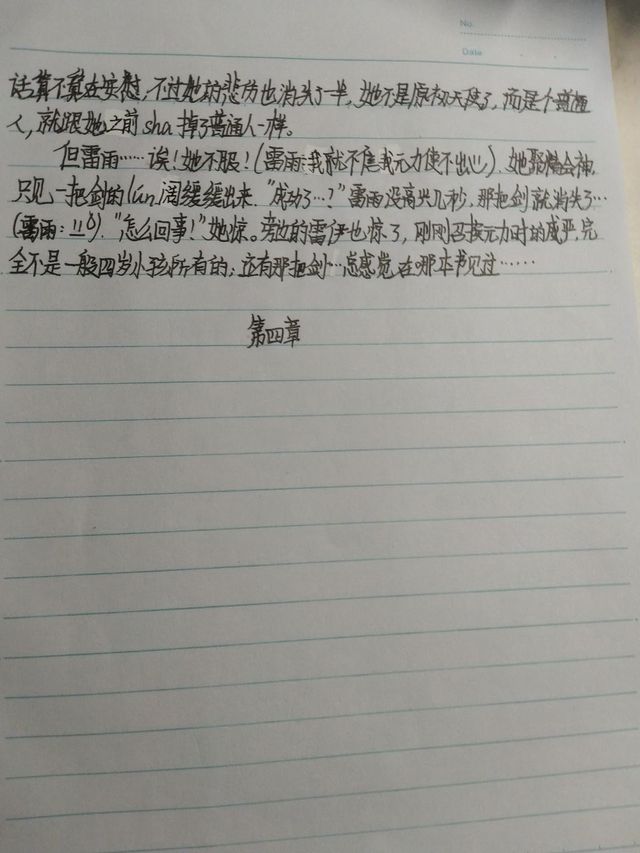 No.
Date
话算不算在安慰,不过她的悲伤也消失了一半,她不是原初天使了,而是个普通
人,就跟她之前sha掉了普通人一样。
但雷雨……诶!她不服!(雷雨:我就不信我元力使不出!!!),她聚精会神,
只见一把剑的lún阔缓缓出来,“成功了…?”雷雨没高兴几秒,那把剑就消失了…
(雷雨:)“怎么回事!”她惊。旁边的雷伊也惊了,刚刚召换元力时的威严,完
全不是一般四岁小孩所有的,还有那把剑…总感觉在哪本书见过……
第四章